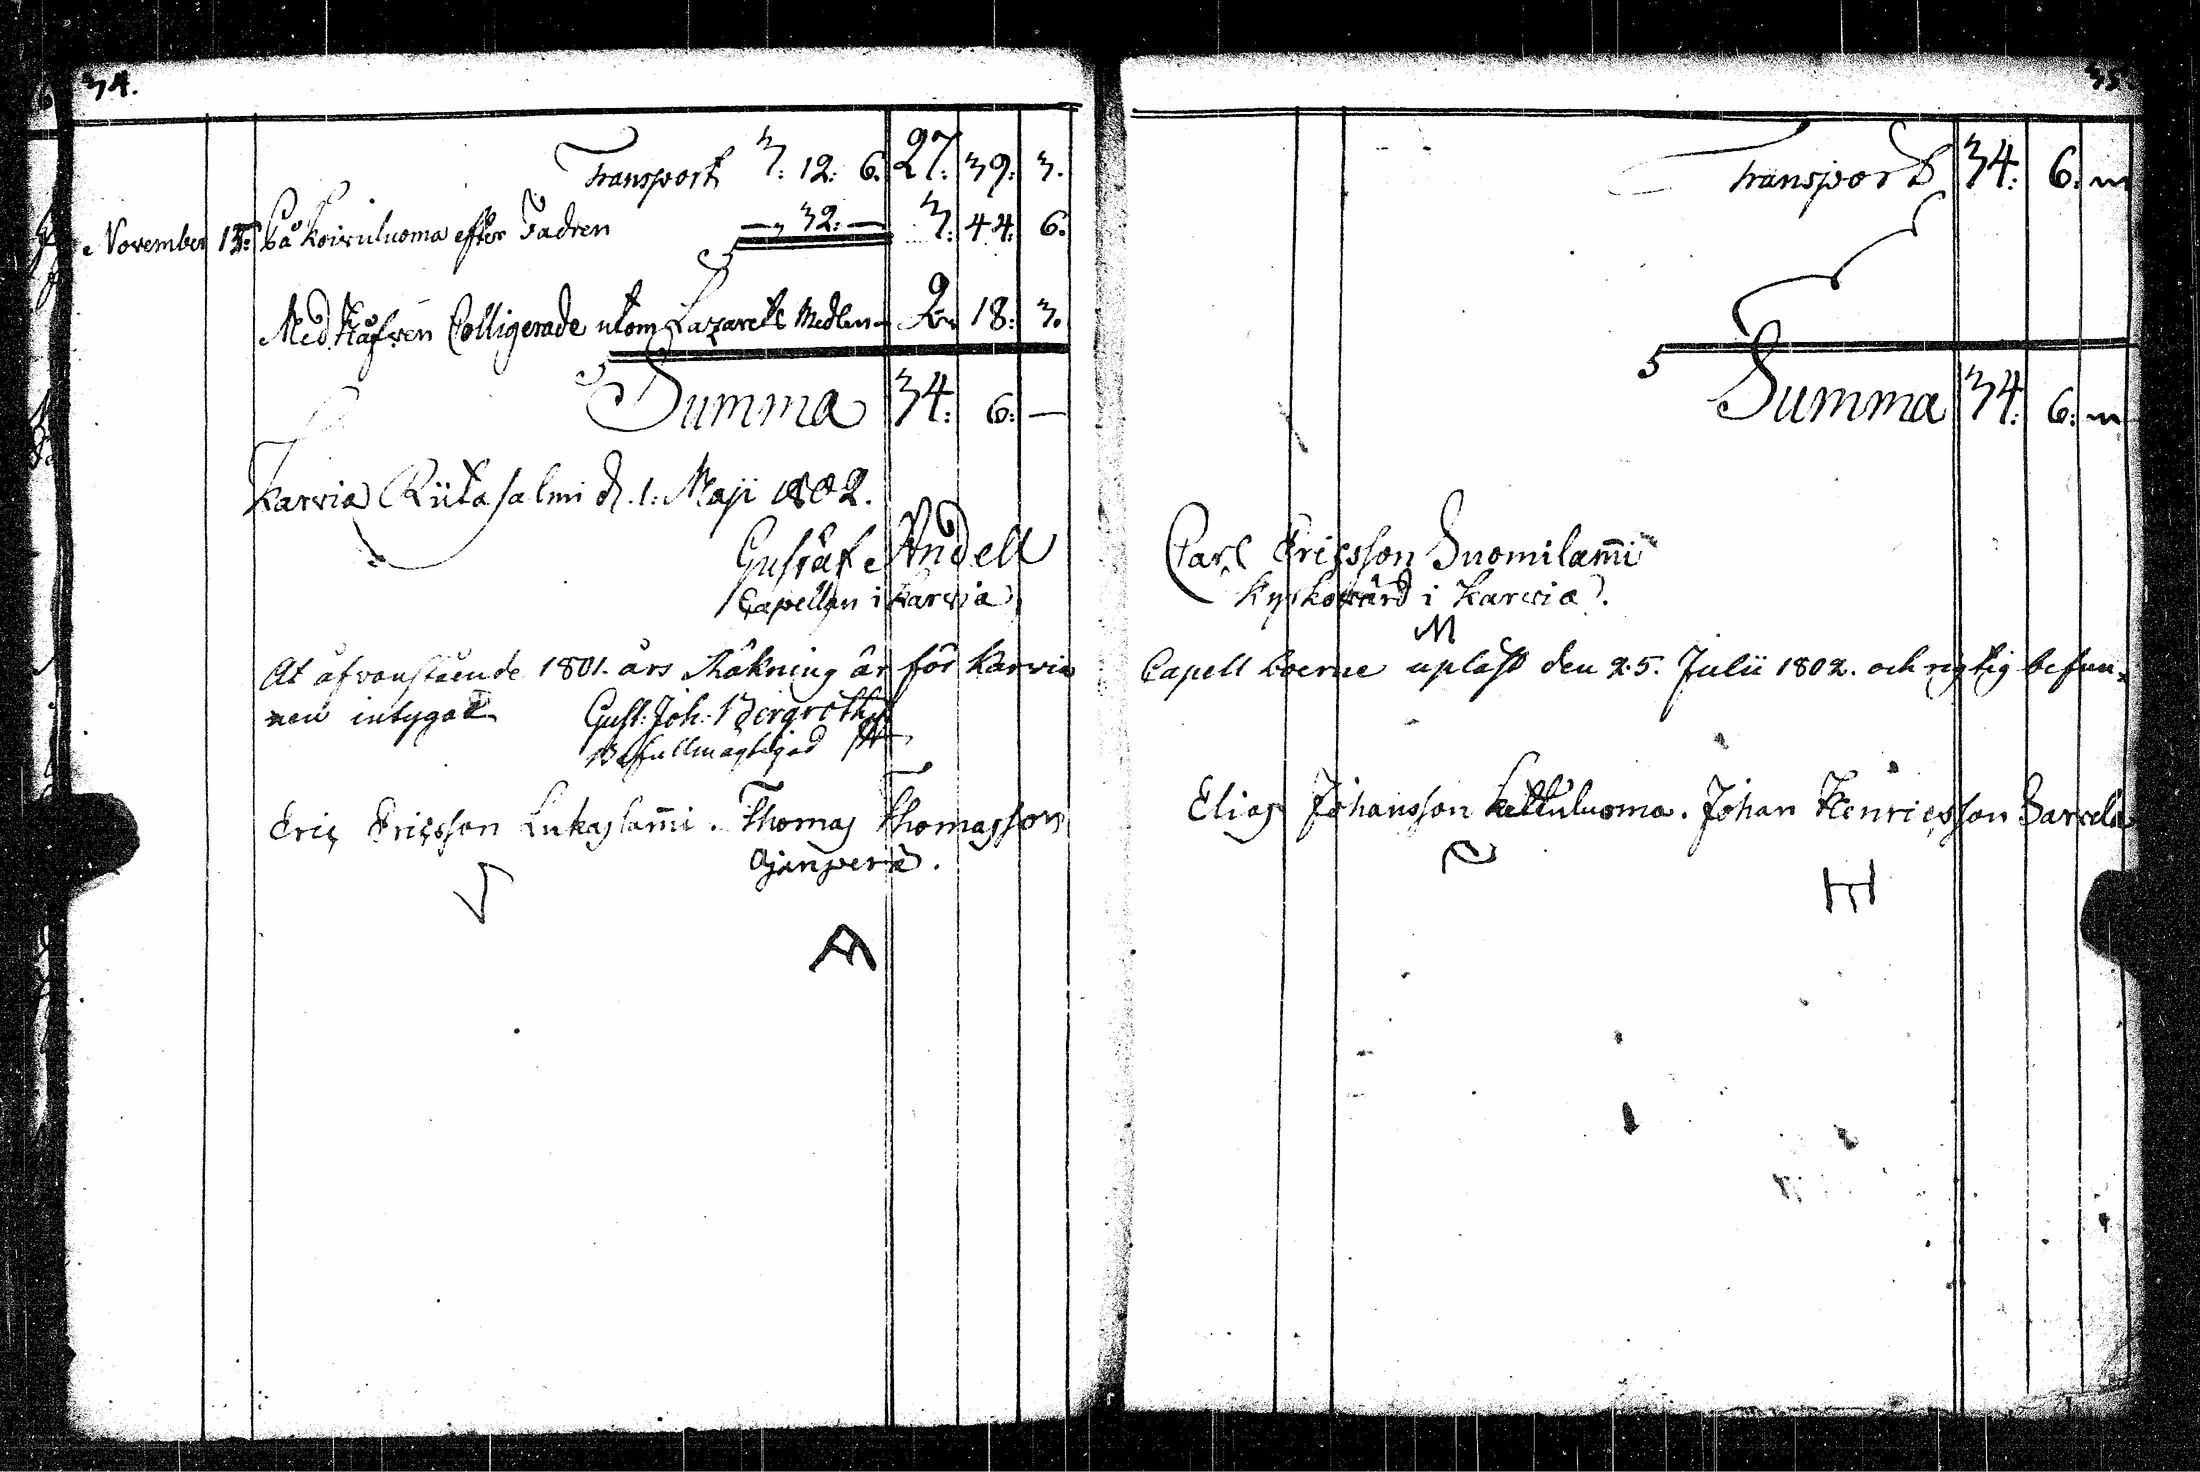 34.
Transport 3: 12: 6. 27: 39: 3.
November 15: På Koivuluoma efter Fadren — 32: — 3: 44: 6.
Med Håfven Colligerade utom Lazaretts Medlen 2: 18: 3.
Summa 34: 6: —
Karvia Riitasalmi d. 1: Maji 1802.
Gustaf Andell
Capellan i Karvia
At åfvanstående 1801. års Räkning är för Karvia
nen intygat Gust: Joh: Bergroth
Befullmägtigad
Eric Ericsson Lukaslam̄i. Thomas Thomasson
Ojanperä.
35
Transport 34: 6:
Summa 34: 6:
Carl Ericsson Suomilam̄i
Kyrkovärd i Karvia.
M
Capell boerne upläst den 25. Julii 1802. och rigtig befun-
Elias Johansson Kettuluoma. Johan Henricsson